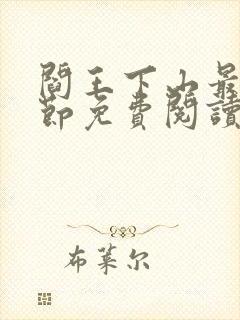 閻王下山最
節免費閱讀
布萊尔